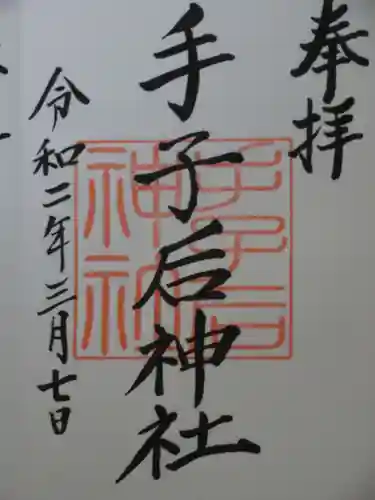 奉拝
手子后神社
手子后
神社
令和二年三月七日